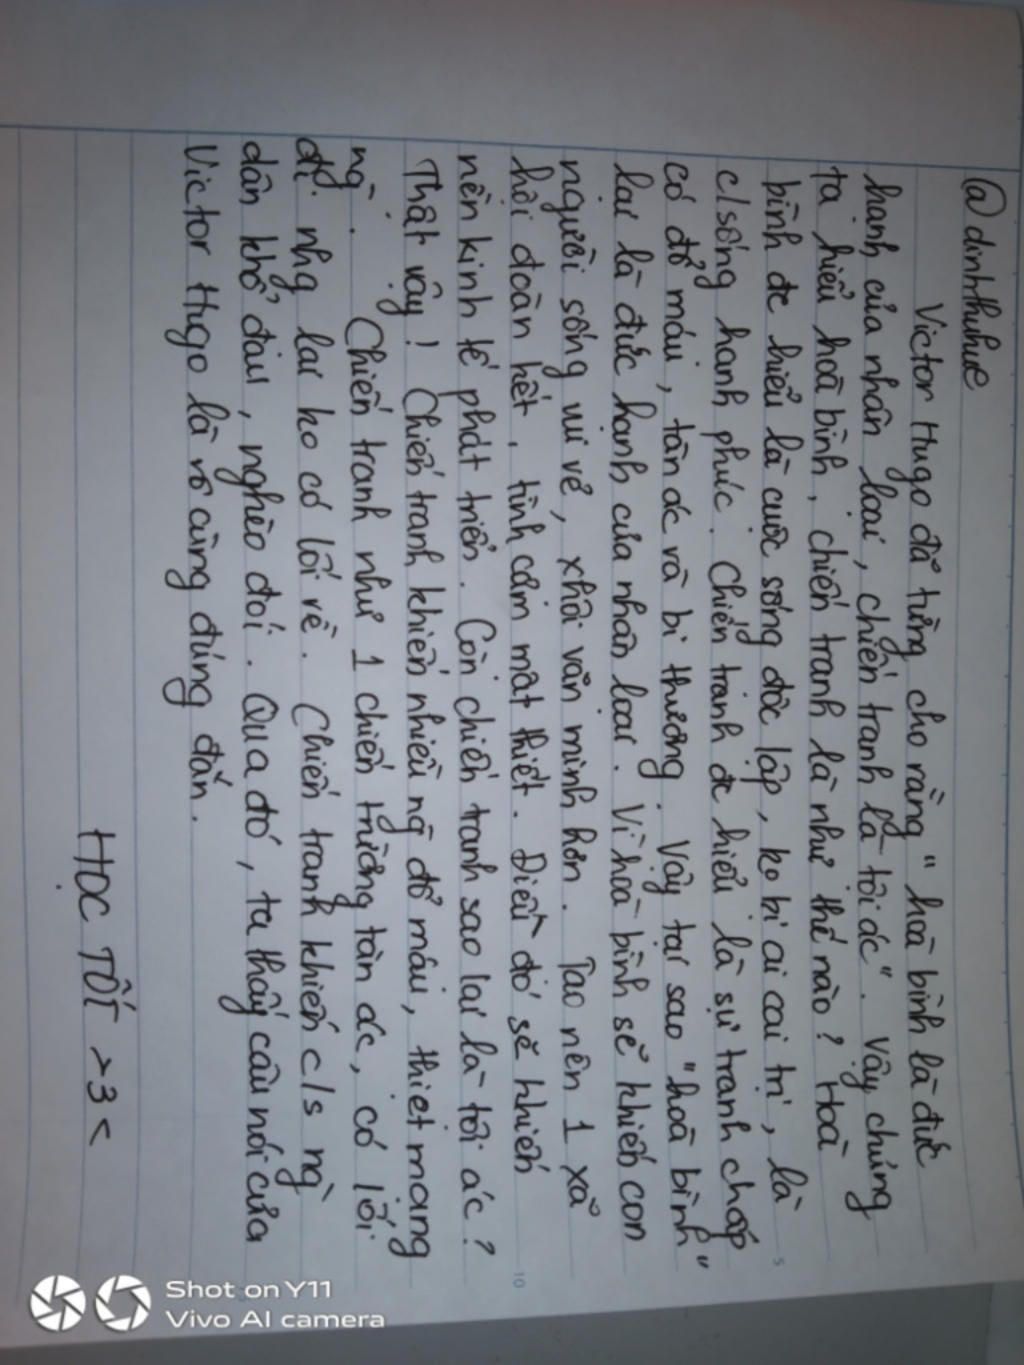 @dinhthuhue
Victor Hugo đã từng cho rằng "hoà bình là đức
hạnh của nhân loại, chiến tranh là tội ác". Vậy chúng
ta hiểu hoà bình, chiến tranh là như thế nào? Hoà
bình đc hiểu là cuộc sống độc lập, ko bị ai cai trị, là
c/sống hạnh phúc. Chiến tranh đc hiểu là sự tranh chấp
có đổ máu, tàn ác và bi thương. Vậy tại sao "hoà bình"
lại là đức hạnh của nhân loại. Vì hoà bình sẽ khiến con
người sống vui vẻ, xã hội văn minh hơn. Tạo nên 1 xã
hội đoàn kết, tình cảm mật thiết. Điều đó sẽ khiến
nền kinh tế phát triển. Còn chiến tranh sao lại là tội ác?
Thật vậy! Chiến tranh khiến nhiều ng đổ máu, thiệt mạng
ng. Chiến tranh như 1 chiến trường tàn ác, có lối
đi nhg lại ko có lối về. Chiến tranh khiến c/s ng
dân khổ đau, nghèo đói. Qua đó, ta thấy câu nói của
Victor Hugo là vô cùng đúng đắn.
HỌC TỐT >3<
Shot on Y11
Vivo AI camera
5
10